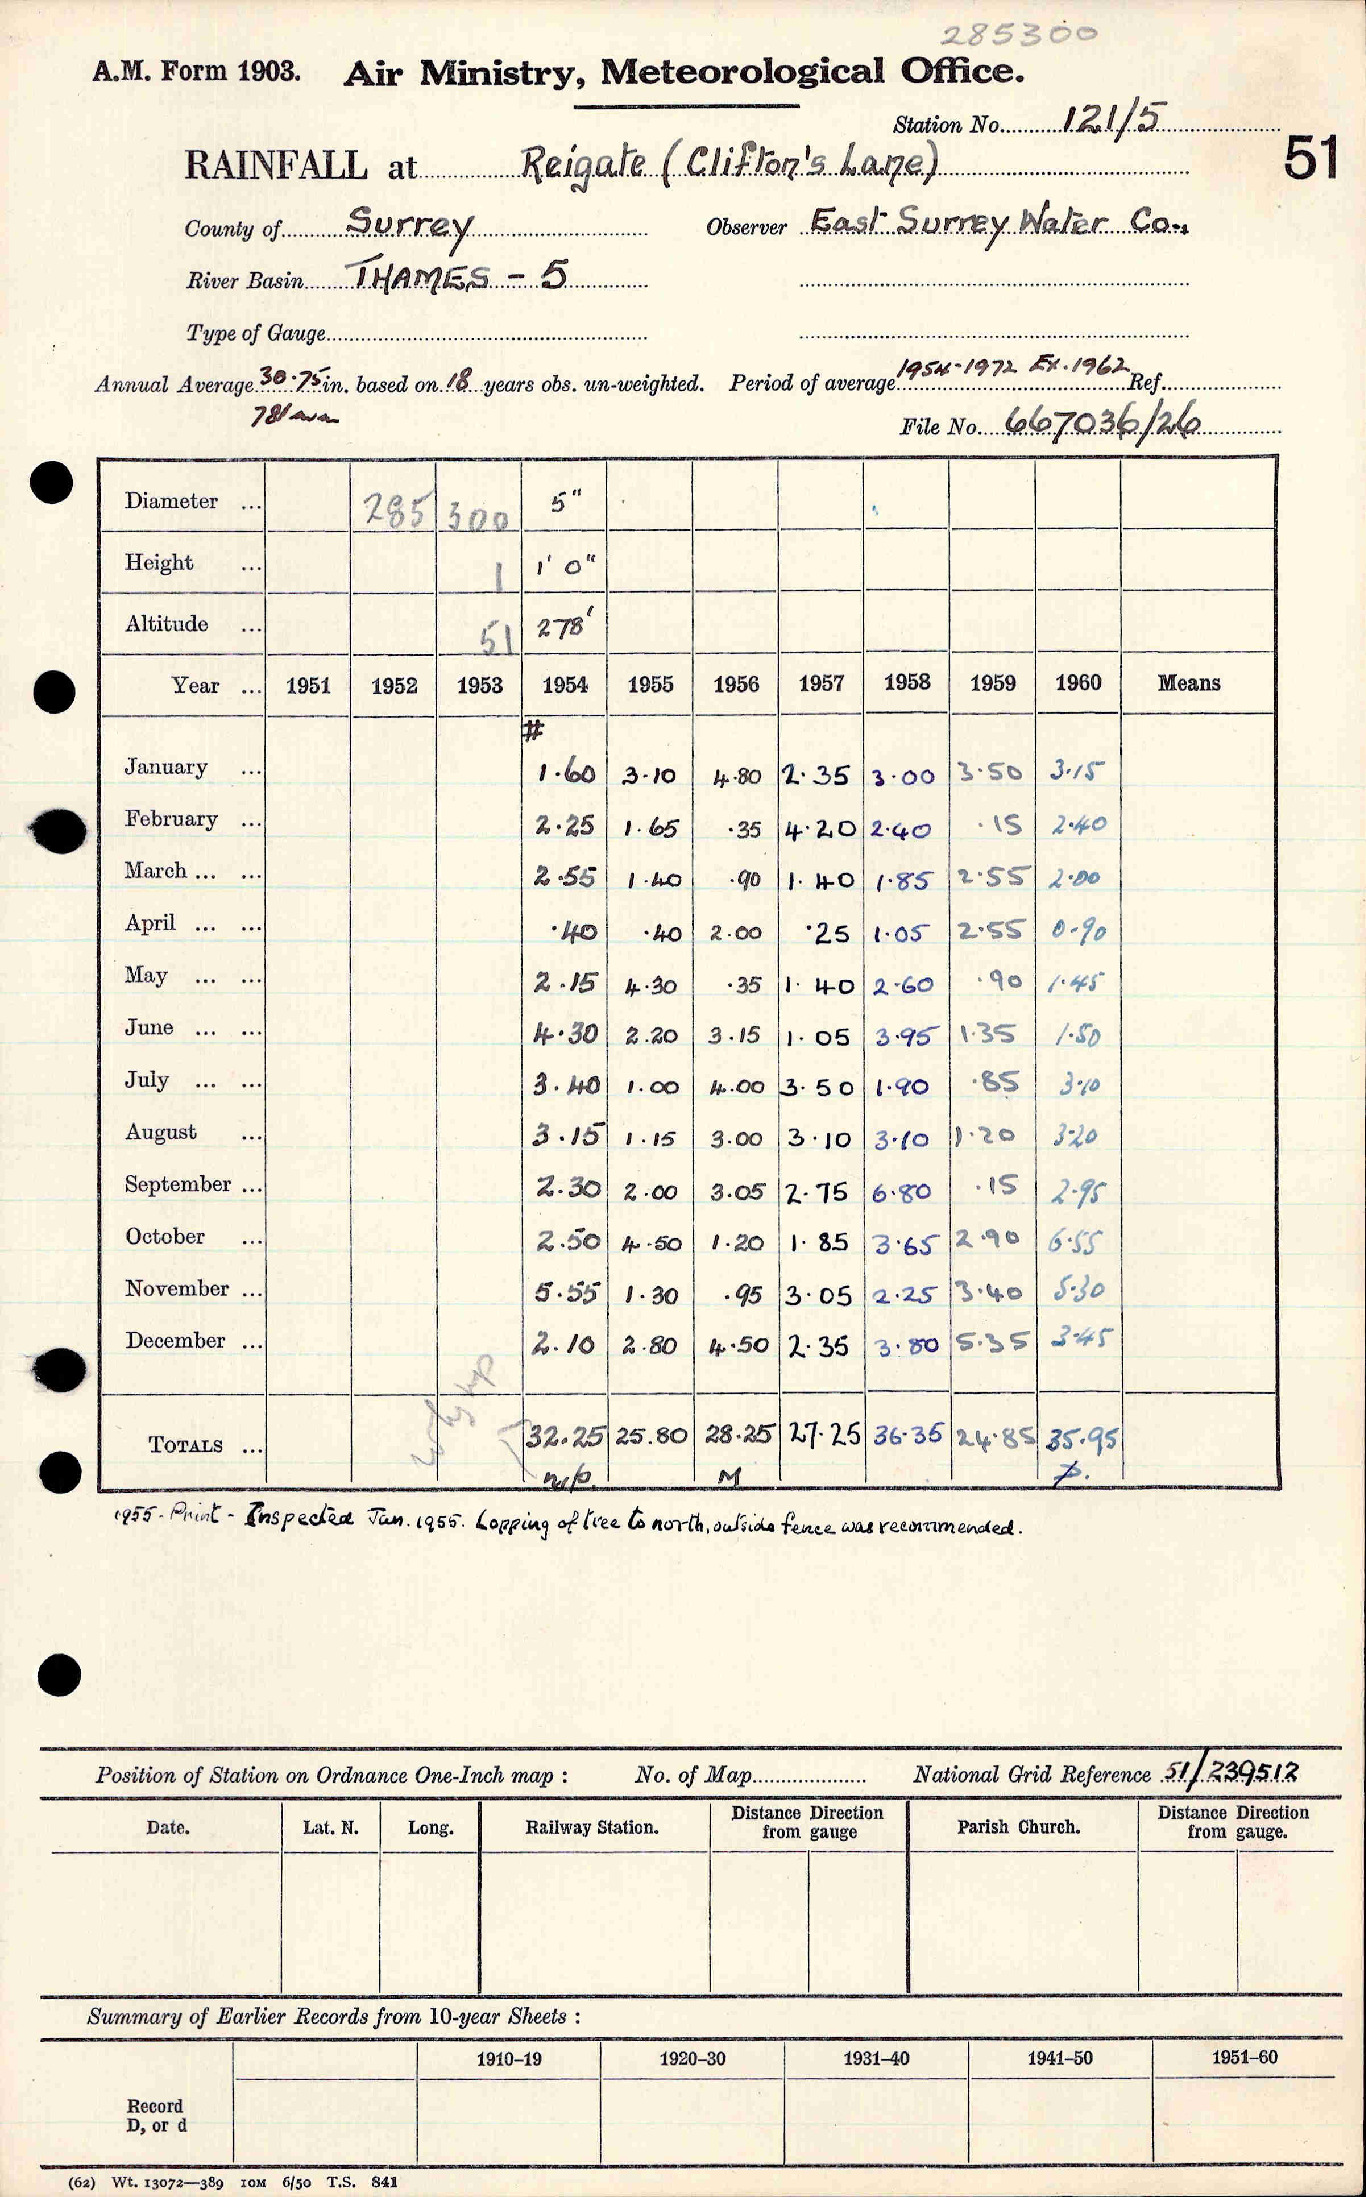 285300
A.M. Form 1903. Air Ministry, Meteorological Office.
Station No. 121/5
51
RAINFALL at Reigate (Clifton's Lane)
County of Surrey Observer East Surrey Water Co.,
River Basin THAMES - 5
Type of Gauge
Annual Average 30.75 in. based on 18 years obs. un-weighted. Period of average 1954-1972 Ex.1962 Ref.
781 mm
File No. 667036/26
Diameter ... 285 300 5"
Height ... 1 1' 0"
Altitude ... 51 278'
Year ... 1951 1952 1953 1954 1955 1956 1957 1958 1959 1960 Means
#
January ... 1.60 3.10 4.80 2.35 3.00 3.50 3.15
February ... 2.25 1.65 .35 4.20 2.40 .15 2.40
March ... ... 2.55 1.40 .90 1.40 1.85 2.55 2.00
April ... ... .40 .40 2.00 .25 1.05 2.55 0.90
May ... ... 2.15 4.30 .35 1.40 2.60 .90 1.45
June ... ... 4.30 2.20 3.15 1.05 3.95 1.35 1.50
July ... ... 3.40 1.00 4.00 3.50 1.90 .85 3.10
August ... 3.15 1.15 3.00 3.10 3.10 1.20 3.20
September ... 2.30 2.00 3.05 2.75 6.80 .15 2.95
October ... 2.50 4.50 1.20 1.85 3.65 2.90 6.55
November ... 5.55 1.30 .95 3.05 2.25 3.40 5.30
December ... 2.10 2.80 4.50 2.35 3.80 5.35 3.45
TOTALS ... 32.25 25.80 28.25 27.25 36.35 24.85 35.95
n/p. M p.
1955 - Print - Inspected Jan. 1955. Lopping of tree to north, outside fence was recommended.
Position of Station on Ordnance One-Inch map : No. of Map National Grid Reference 51/239512
Date. Lat. N. Long. Railway Station. Distance Direction from gauge Parish Church. Distance Direction from gauge.
Summary of Earlier Records from 10-year Sheets :
1910-19 1920-30 1931-40 1941-50 1951-60
Record
D, or d
(62) Wt. 13072—389 10M 6/50 T.S. 841